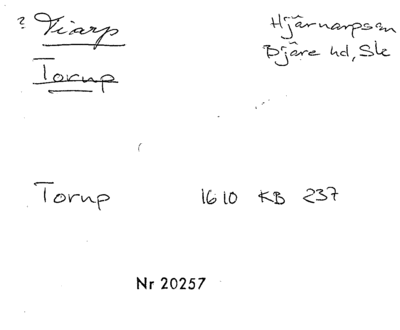 ? Tiarp Hjärnarpssn
Torup Bjäre hd, Sk
Torup 1610 KB 237
Nr 20257